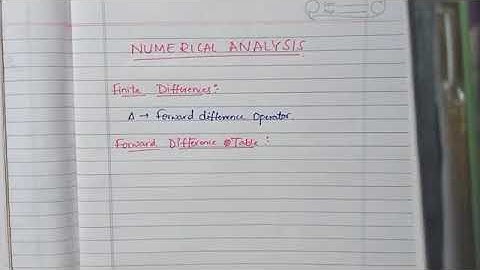 NUMERICAL ANALYSIS
Finite Differences:-
Δ → Forward difference Operator
Forward Difference Table :